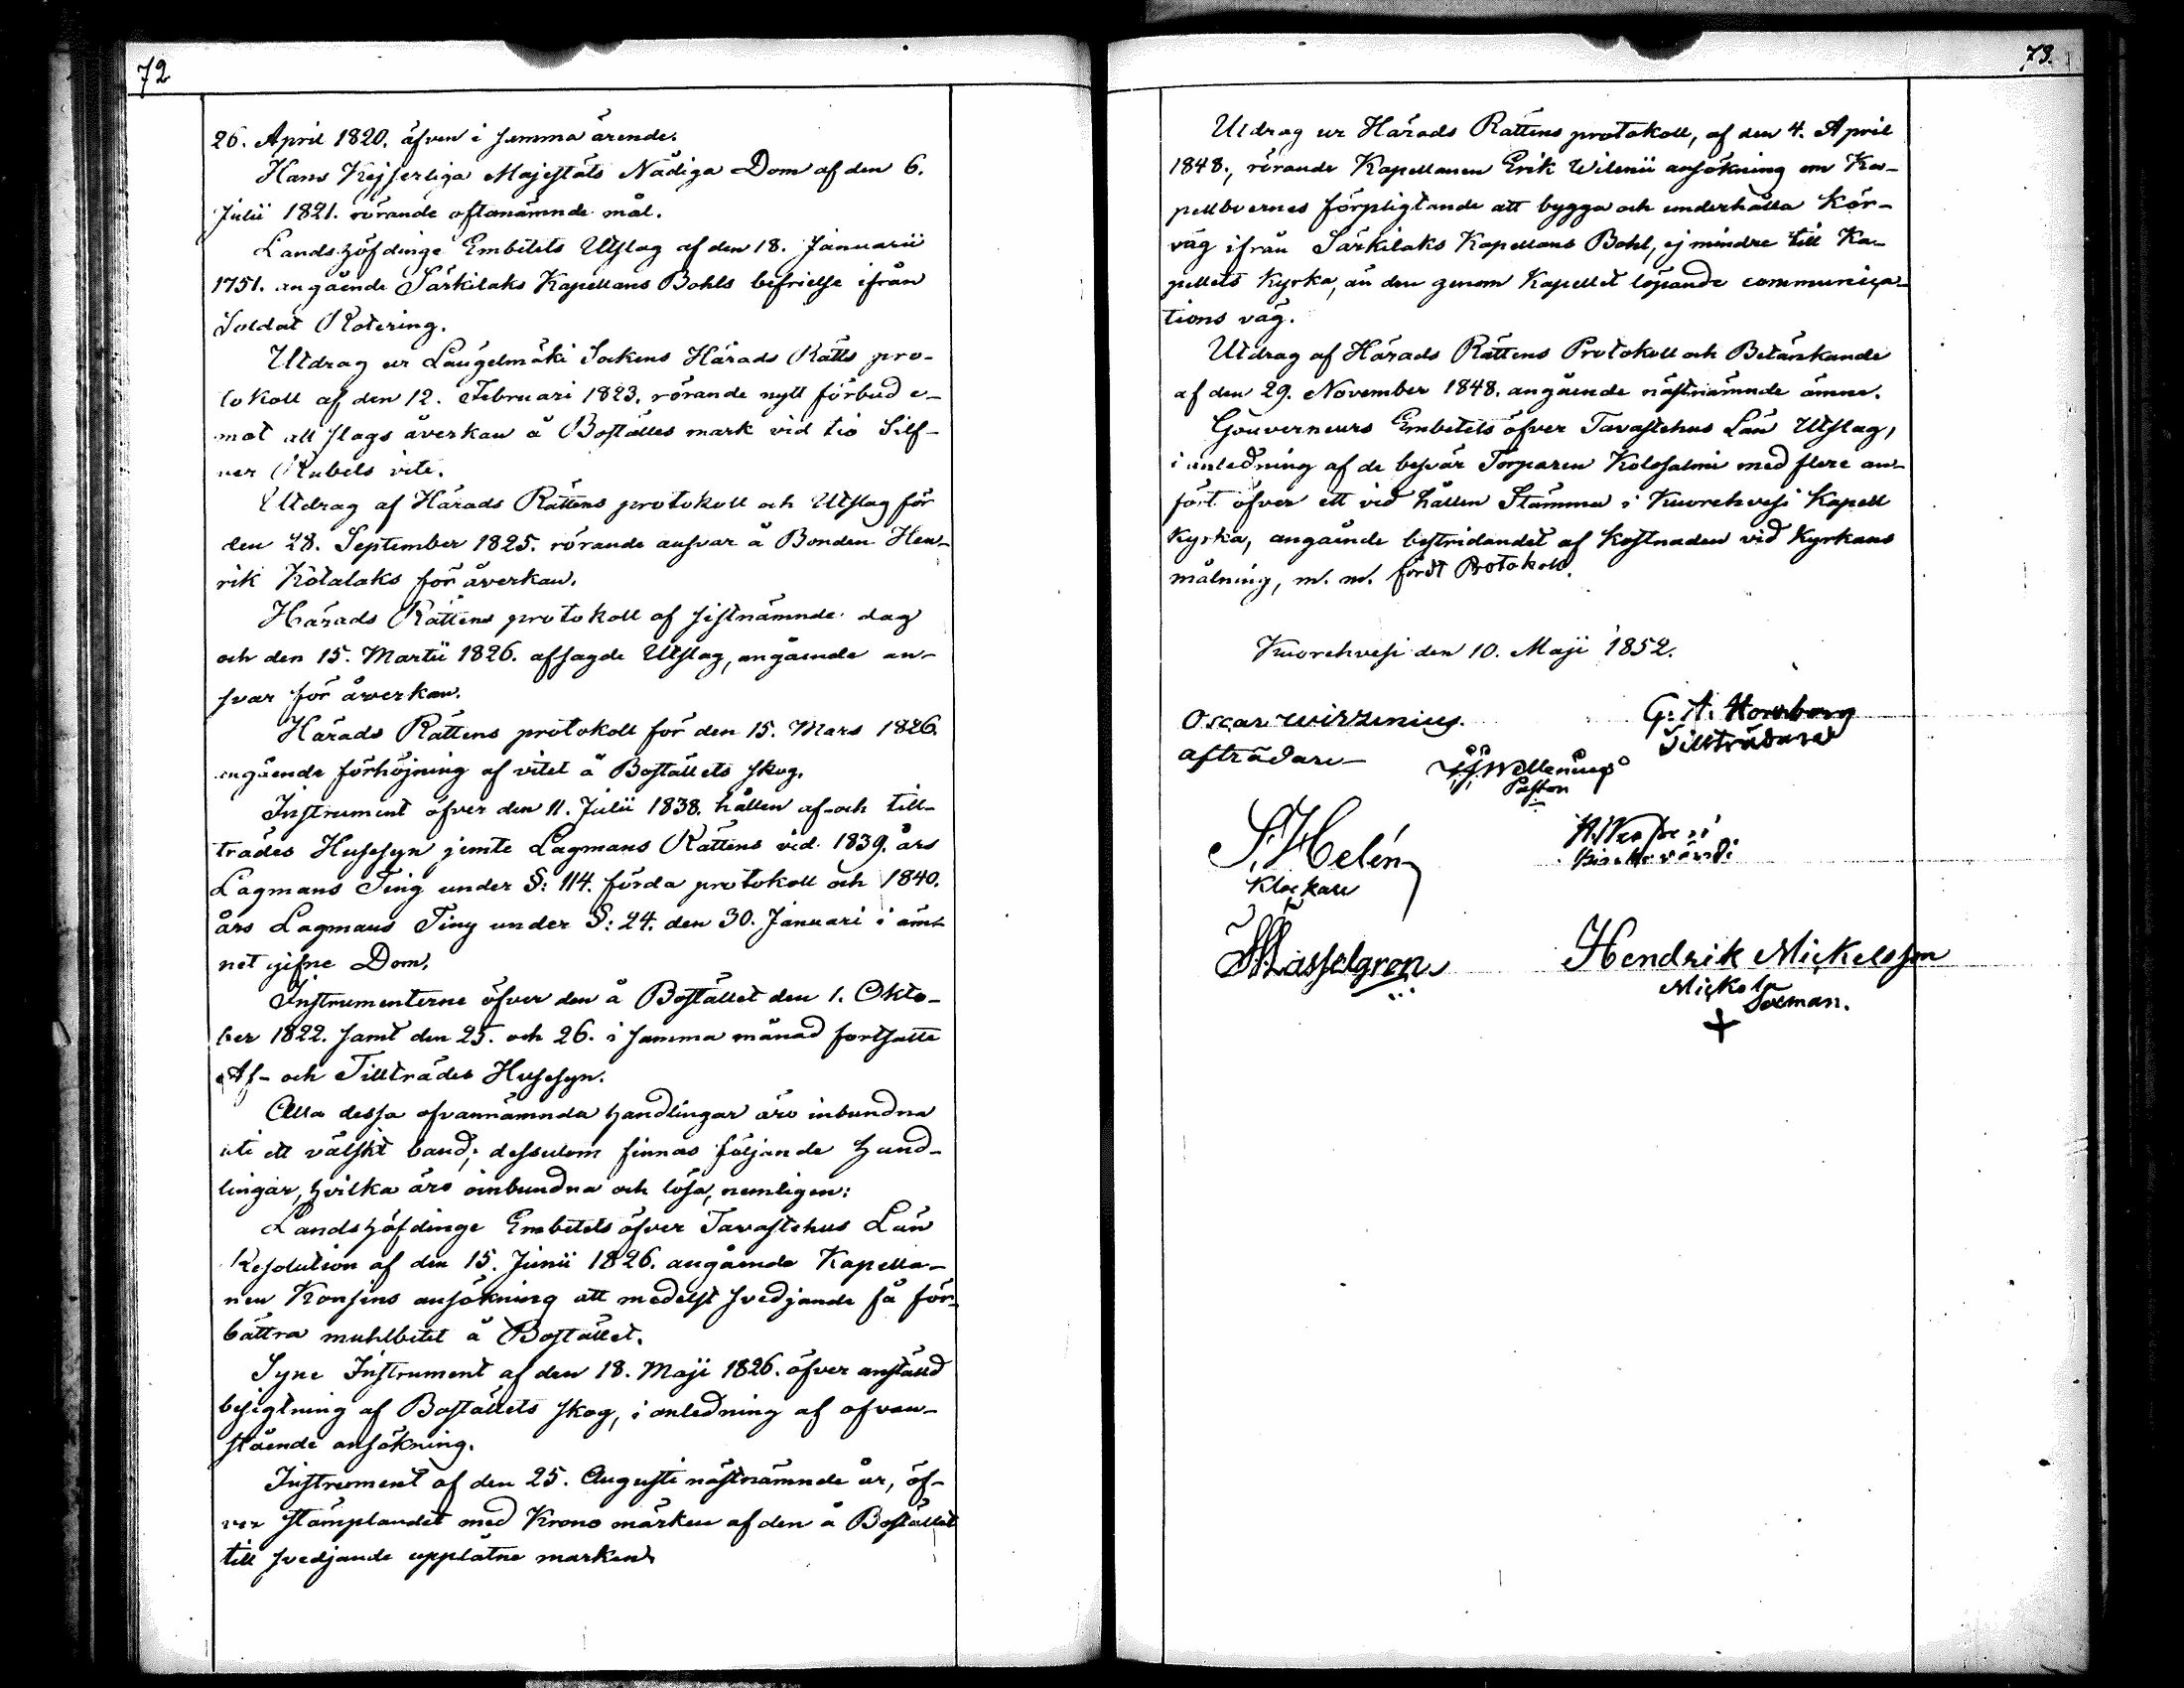 72
26. April 1820. äfven i samma ärende.
Hans Kejserliga Majestäts Nådiga Dom af den 6.
Julii 1821. rörande oftanämnde mål.
Landshöfdinge Embetets Utslag af den 18. Januarii
1751. angående Särkilaks Kapellans Bohls befrielse ifrån
Soldat Rotering.
Utdrag ur Längelmäki Sockens Härads Rätts pro-
tokoll af den 12. Februari 1823. rörande nytt förbud e-
mot all slags åverkan å Boställes mark vid tio Silf-
ver Rubels vite.
Utdrag af Härads Rättens protokoll och Utslag för
den 28. September 1825. rörande ansvar å Bonden Hen-
rik Kotalaks för åverkan.
Härads Rättens protokoll af sistnämnde dag
och den 15. Martii 1826. afsagde Utslag, angående an-
svar för åverkan.
Härads Rättens protokoll för den 15. Mars 1826.
angående förhöjning af vitet å Boställets skog.
Instrument öfver den 11. Julii 1838. hållen af- och till-
trädes Husesyn jemte Lagmans Rättens vid 1839. års
Lagmans Ting under §: 114. förda protokoll och 1840.
års Lagmans Ting under §: 24. den 30. Januari i äm-
net gifne Dom.
Instrumenterne öfver den å Bostället den 1. Okto-
ber 1822. samt den 25. och 26. i samma månad fortsatte
Af- och Tillträdes Husesyn.
Alla dessa ofvannämnda handlingar äro inbundna
uti ett välskt band; dessutom finnas följande hand-
lingar, hvilka äro oinbundna och lösa, nemligen:
Landshöfdinge Embetets öfver Tavastehus Län
Resolution af den 15. Junii 1826. angående Kapella-
nen Konsins ansökning att medelst svedjande få för-
bättra muhlbetet å Bostället.
Syne Instrument af den 18. Maji 1826. öfver anställd
besigtning af Boställets skog, i anledning af ofvan-
stående ansökning.
Instrument af den 25. Augusti nästnämnde år, öf-
ver stämplandet med Krono märken af den å Bostället
till svedjande upplåtne marken.
73.
Utdrag ur Härads Rättens protokoll, af den 4. April
1848., rörande Kapellanen Erik Wilenii ansökning om Ka-
pellboernes förpligtande att bygga och underhålla Kör-
väg ifrån Särkilaks Kapellans Bohl, ej mindre till Ka-
pellets Kyrka, än den genom Kapellet löpande communica-
tions väg.
Utdrag af Härads Rättens Protokoll och Betänkande
af den 29. November 1848. angående nästnämnde ämne.
Gouverneurs Embetets öfver Tavastehus Län Utslag,
i anledning af de besvär Torparen Kolosalmi med flere an-
fört öfver ett vid hållen Stämma i Kuorehvesi Kapell
Kyrka, angående bestridandet af Kostnaden vid Kyrkans
målning, m. m. fördt Protokoll.
Kuorehvesi den 10. Maji 1852.
Oscar Wirzenius.
afträdare
G. A. Hornborg
Tillträdare
Wellenius
Pastor
S. Helén
Klockare
Hasselgren
Hendrik Mickelsson
Mickola
Sexman.